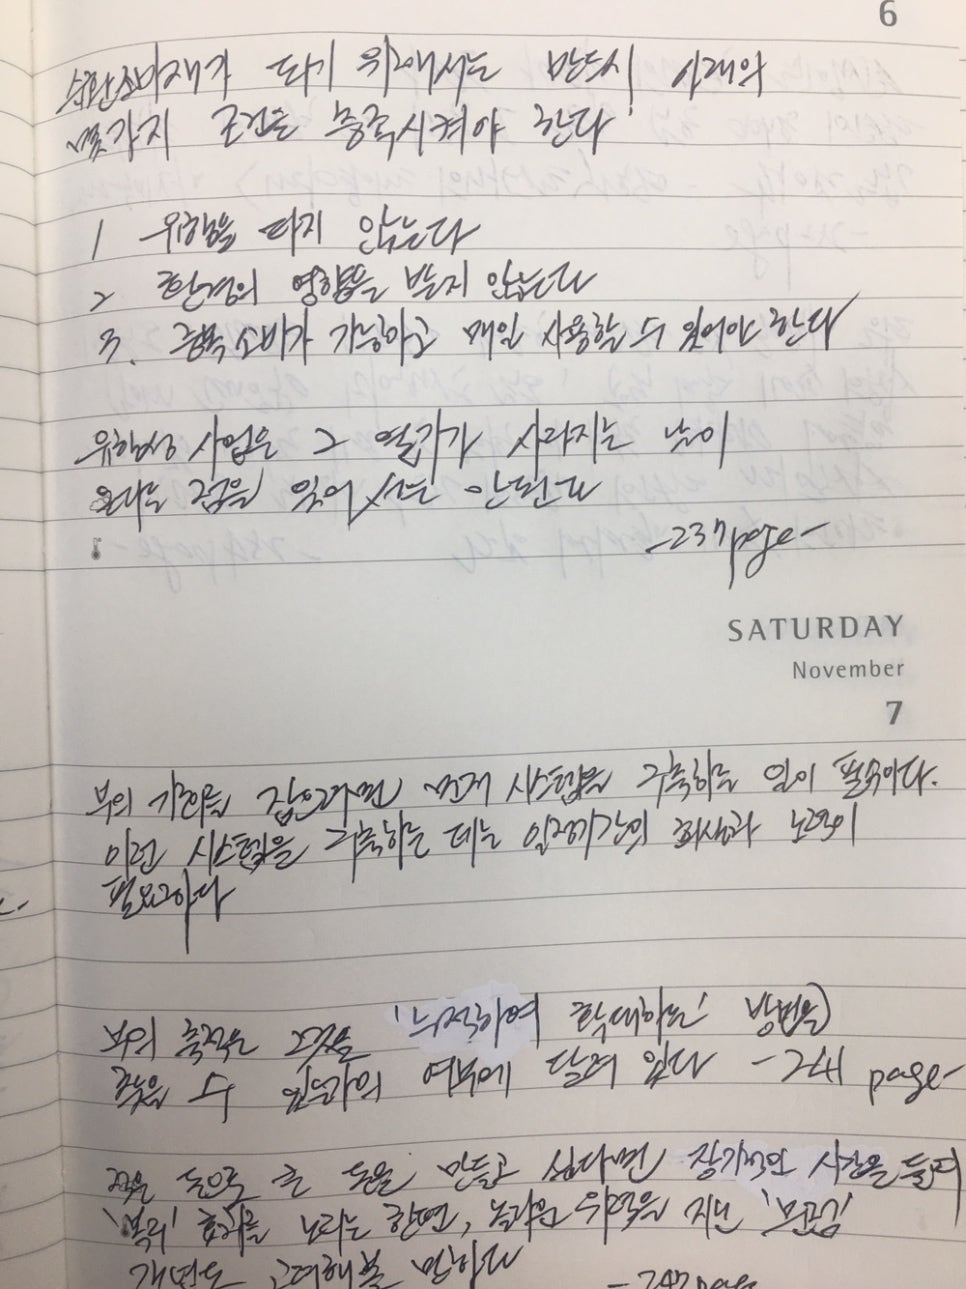 6
순환소비재가 되기 위해서는 반드시 아래의
몇가지 조건을 충족시켜야 한다
1 유행을 타지 않는다
2 환경의 영향을 받지 않는다
3. 중복소비가 가능하고 매일 사용할 수 있어야 한다
유행성 사업은 그 열기가 사라지는 날이
온다는 점을 잊어서는 안된다
-237page-
SATURDAY
November
7
부의 기회를 잡으려면 먼저 시스템을 구축하는 일이 필수이다.
이런 시스템을 구축하는 데는 일정기간의 희생과 노력이
필요하다
부의 축적은 그것을 '누적하여 확대하는' 방법을
찾을 수 있는가의 여부에 달려 있다 -241 page-
적은 돈으로 큰 돈을 만들고 싶다면 장기적인 시간을 들여
'복리' 효과를 노리는 한편, 놀라운 위력을 지닌
-242page